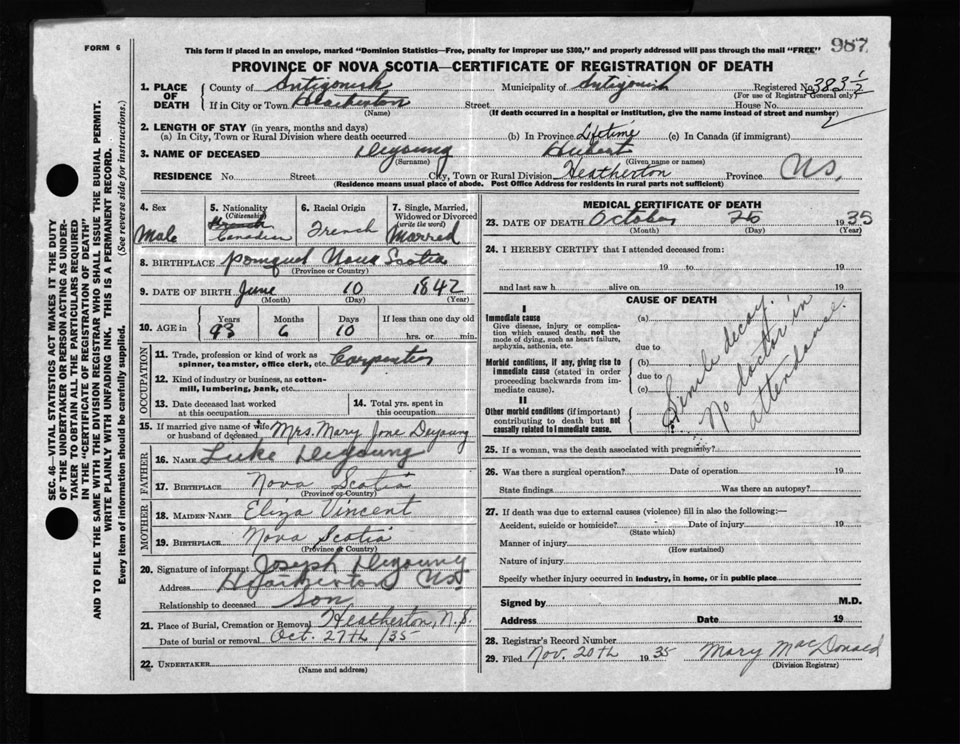 FORM 6
This form if placed in an envelope, marked "Dominion Statistics—Free, penalty for improper use $300," and properly addressed will pass through the mail "FREE" 987
PROVINCE OF NOVA SCOTIA—CERTIFICATE OF REGISTRATION OF DEATH
1. PLACE OF DEATH County of Antigonish Municipality of Antigonish Registered No. 383 1/2
(For use of Registrar General only)
If in City or Town Heatherton Street House No.
(Name) (If death occurred in a hospital or institution, give the name instead of street and number)
2. LENGTH OF STAY (in years, months and days)
(a) In City, Town or Rural Division where death occurred (b) In Province Lifetime (c) In Canada (if immigrant)
3. NAME OF DECEASED Deyoung Hubert
(Surname) (Given name or names)
RESIDENCE No. Street City, Town or Rural Division Heatherton Province NS.
(Residence means usual place of abode. Post Office Address for residents in rural parts not sufficient)
4. Sex
Male
5. Nationality
(Citizenship)
French
Canadian
6. Racial Origin
French
7. Single, Married, Widowed or Divorced
(write the word)
Married
8. BIRTHPLACE Pomquet Nova Scotia
(Province or Country)
9. DATE OF BIRTH June 10 1842
(Month) (Day) (Year)
10. AGE in Years Months Days If less than one day old
93 6 10 hrs. or min.
OCCUPATION
11. Trade, profession or kind of work as spinner, teamster, office clerk, etc. Carpenter
12. Kind of industry or business, as cotton-mill, lumbering, bank, etc.
13. Date deceased last worked at this occupation
14. Total yrs. spent in this occupation
15. If married give name of wife or husband of deceased Mrs. Mary Jane Deyoung
FATHER
16. NAME Luke Deyoung
17. BIRTHPLACE Nova Scotia
(Province or Country)
MOTHER
18. MAIDEN NAME Eliza Vincent
19. BIRTHPLACE Nova Scotia
(Province or Country)
20. Signature of informant Joseph Deyoung
Address Heatherton NS
Relationship to deceased Son
21. Place of Burial, Cremation or Removal Heatherton, N.S.
Date of burial or removal Oct. 27th /35
22. UNDERTAKER
(Name and address)
MEDICAL CERTIFICATE OF DEATH
23. DATE OF DEATH October 26 1935
(Month) (Day) (Year)
24. I HEREBY CERTIFY that I attended deceased from:
19 to 19
and last saw h alive on 19
CAUSE OF DEATH
I
Immediate cause
Give disease, injury or complication which caused death, not the mode of dying, such as heart failure, asphyxia, asthenia, etc.
(a)
due to
Morbid conditions, if any, giving rise to immediate cause (stated in order proceeding backwards from immediate cause).
(b)
due to
(c)
II
Other morbid conditions (if important) contributing to death but not causally related to immediate cause.
Senile decay.
No doctor in
attendance.
25. If a woman, was the death associated with pregnancy?
26. Was there a surgical operation? Date of operation 19
State findings Was there an autopsy?
27. If death was due to external causes (violence) fill in also the following:—
Accident, suicide or homicide? Date of injury 19
(State which)
Manner of injury
(How sustained)
Nature of injury
Specify whether injury occurred in industry, in home, or in public place
Signed by M.D.
Address Date 19
28. Registrar's Record Number
29. Filed Nov. 20th 1935 Mary MacDonald
(Division Registrar)
SEC. 46—VITAL STATISTICS ACT MAKES IT THE DUTY
OF THE UNDERTAKER OR PERSON ACTING AS UNDER-
TAKER TO OBTAIN ALL THE PARTICULARS REQUIRED
IN THE "CERTIFICATE OF REGISTRATION OF DEATH"
AND TO FILE THE SAME WITH THE DIVISION REGISTRAR WHO SHALL ISSUE THE BURIAL PERMIT.
WRITE PLAINLY WITH UNFADING INK. THIS IS A PERMANENT RECORD.
Every item of information should be carefully supplied. (See reverse side for instructions.)